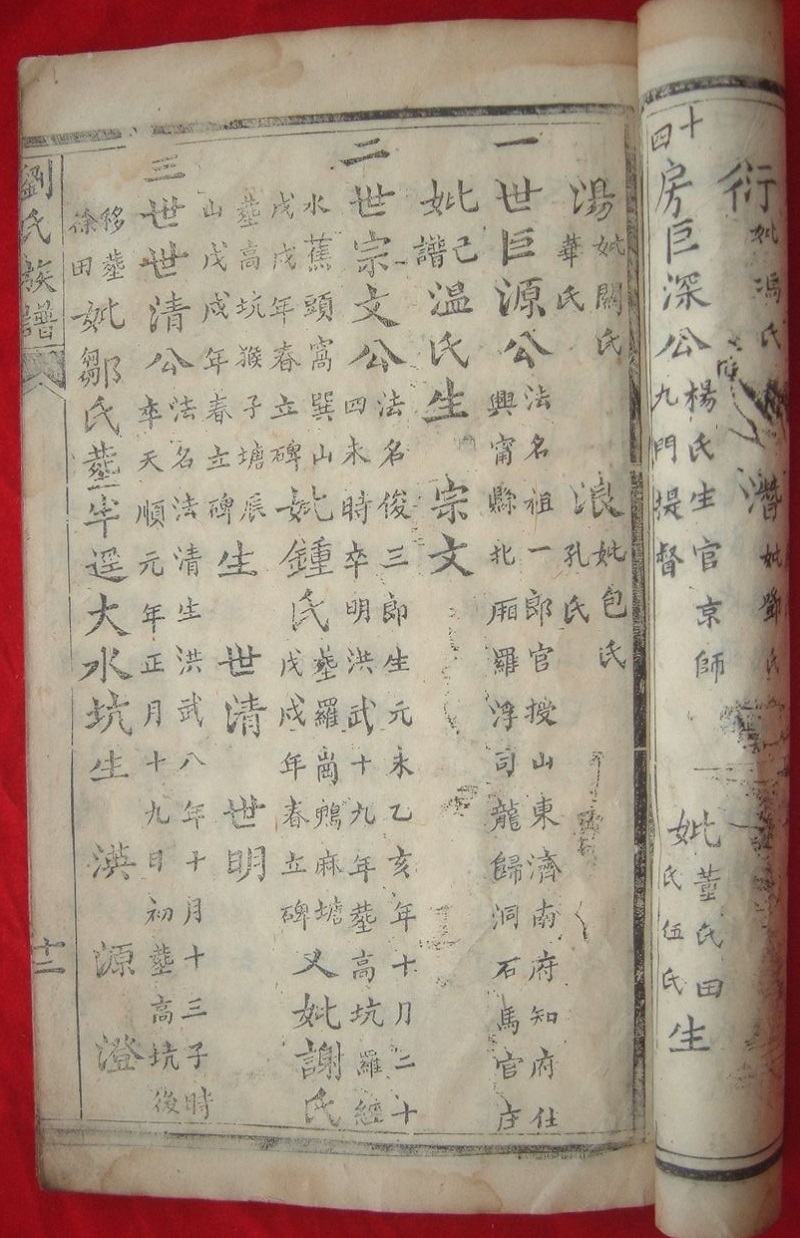 衍 妣馮氏 潛 妣鄧氏
十四房巨深公 楊氏生官京師九門提督 妣董氏田氏伍氏 生
湯 妣關氏華氏 浪 妣包氏孔氏
一世巨源公 法名祖一郎官授山東濟南府知府仕興甯縣北廂羅浮司龍歸洞石馬官庄
妣譜己温氏生 宗文
二世宗文公 法名俊三郎生元永乙亥年十月二十四未時卒明洪武十九年塟高坑羅經
水蕉頭窩巽山戊戌年春立碑 妣鍾氏 塟羅崗鴨麻塘戊戌年春立碑 又妣謝氏
塟高坑猴子塘辰山戊戌年春立碑 生 世清 世明
三世世清公 法名法清生洪武八年十月十三子時卒天順元年正月十九日初塟高坑後
移塟徐田 妣鄒氏塟半逕大水坑生 淇 源 澄
劉氏族譜 十二